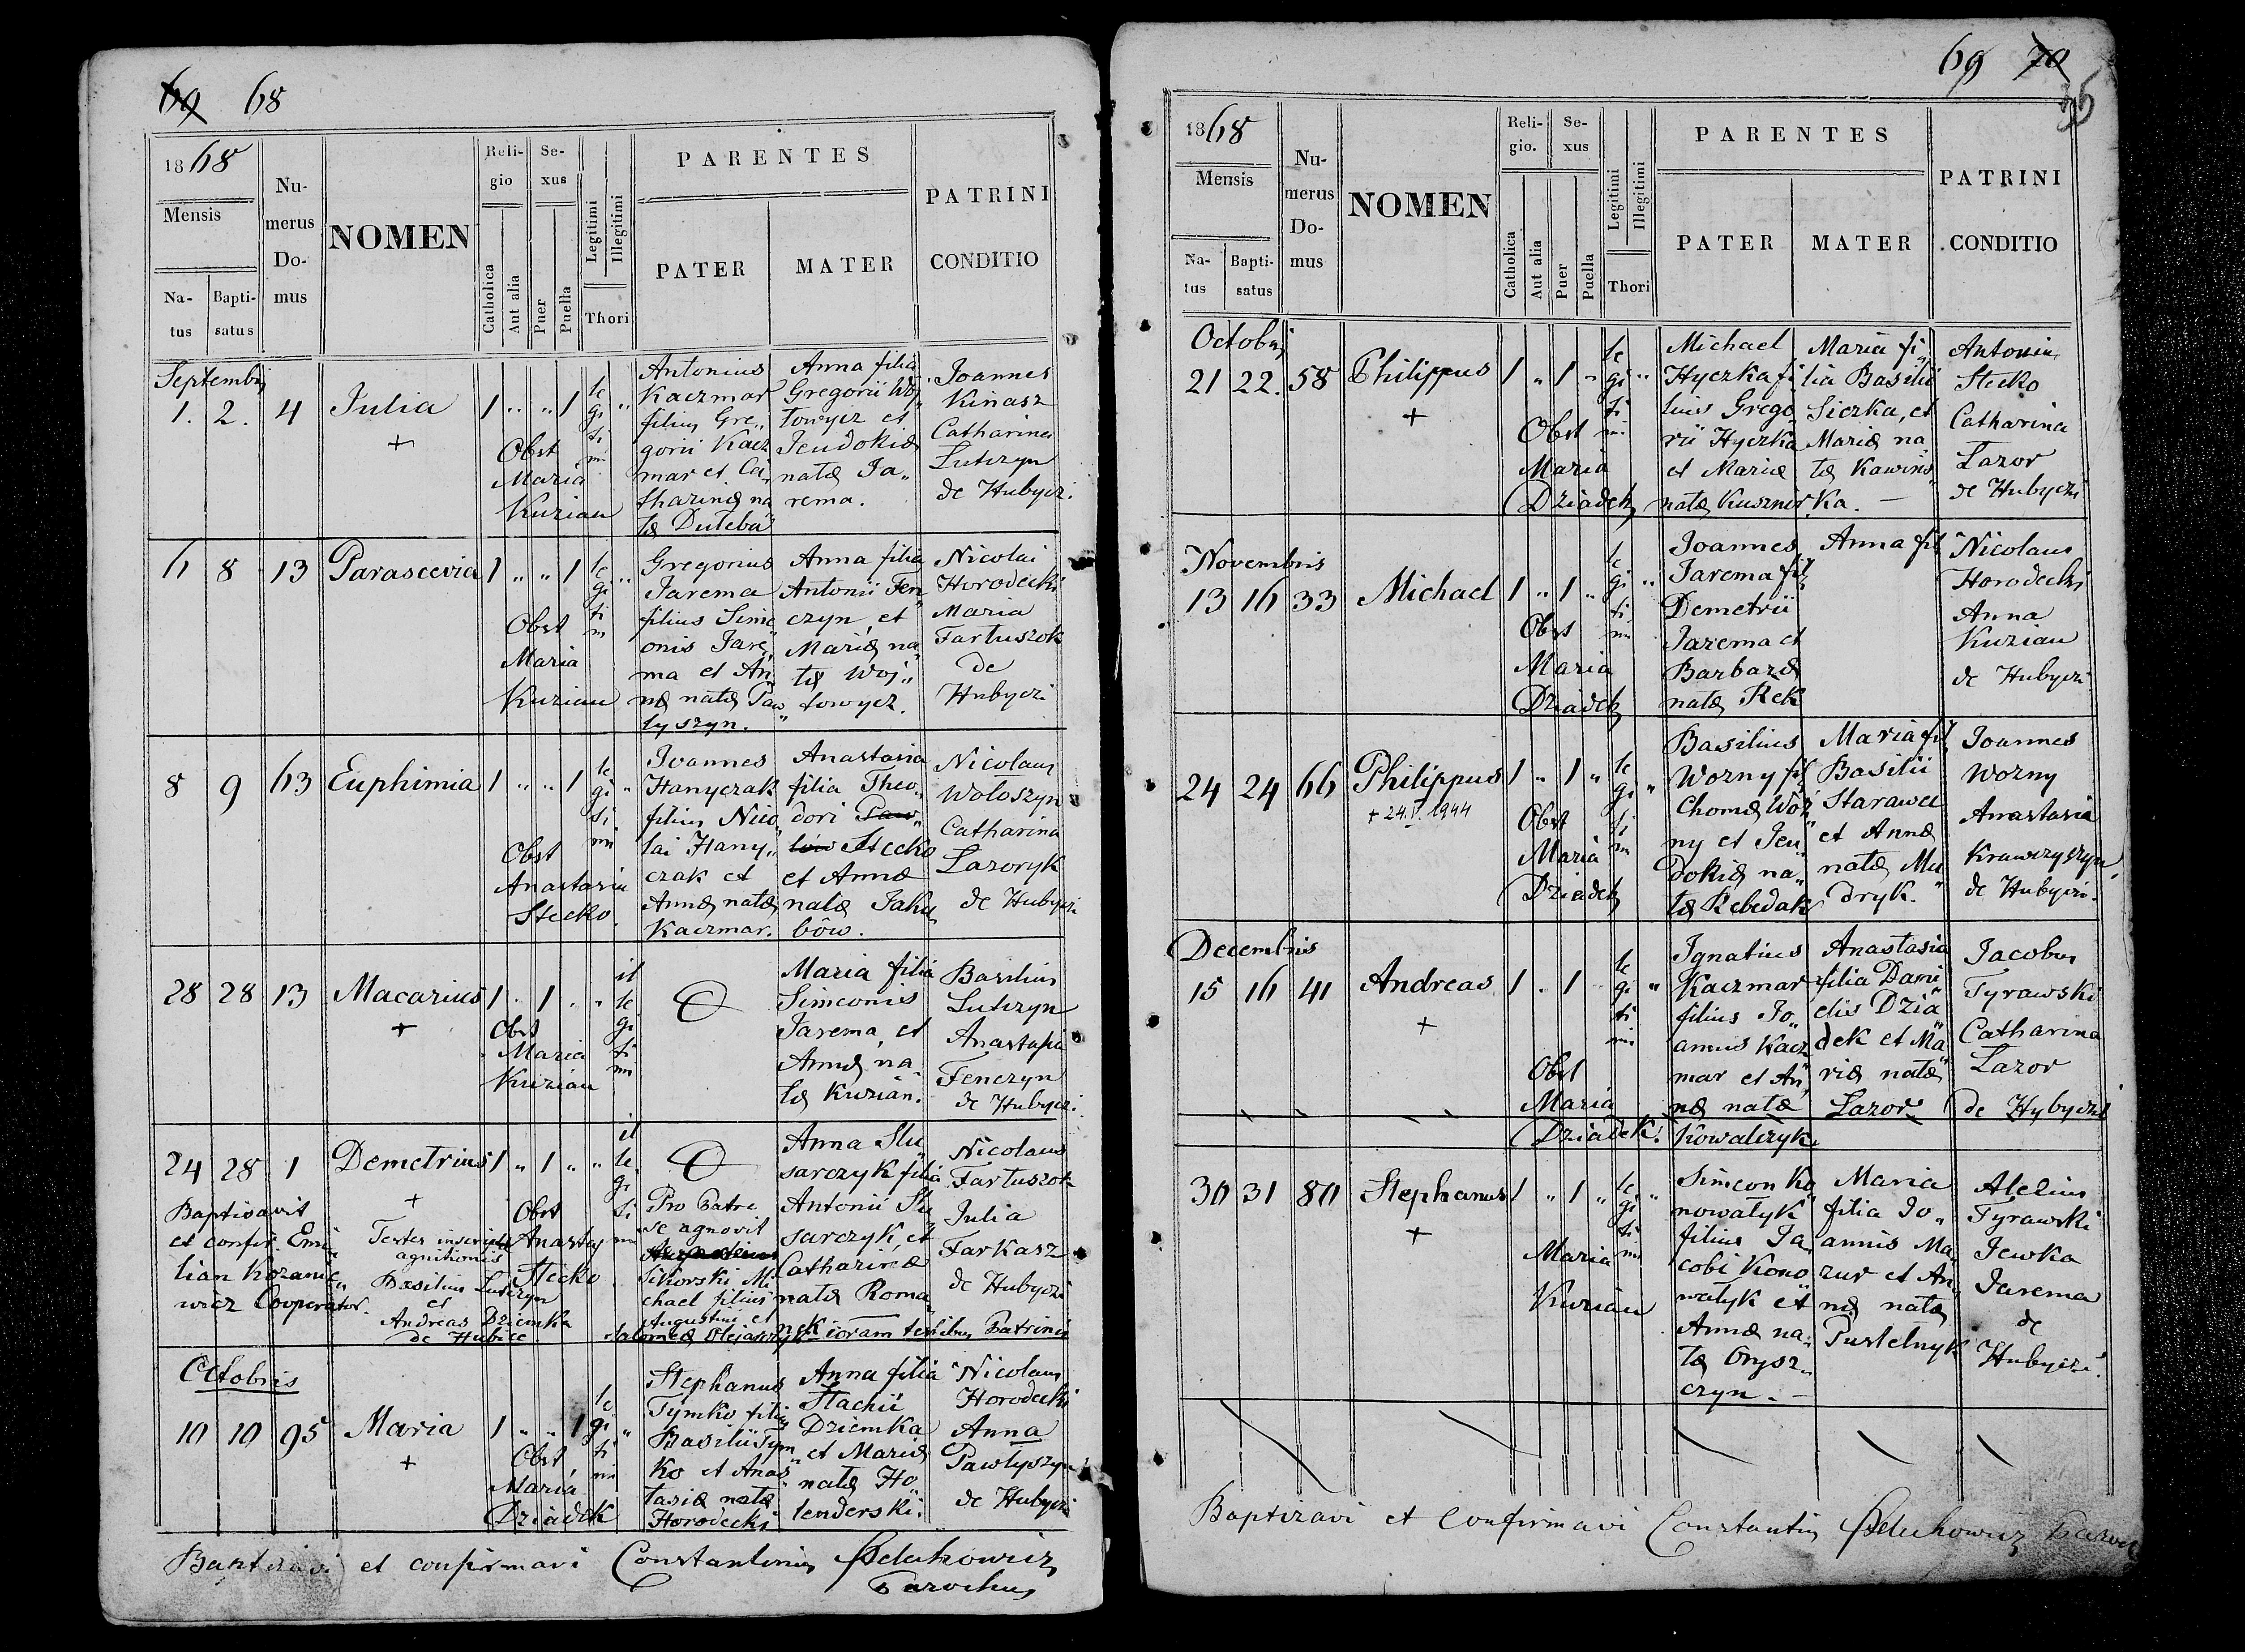 69 68
1868
Mensis
Na-
tus
Bapti-
satus
Nu-
merus
Do-
mus
NOMEN
Reli-
gio
Catholica
Aut alia
Se-
xus
Puer
Puella
Legitimi
Illegitimi
Thori
PARENTES
PATER
MATER
PATRINI
CONDITIO
Septembris
1. 2. 4 Julia 1 " " 1 le
gi "
ti
mi
+
Obst
Maria
Kuzian
Antonius
Kaczmar
filius Gre„
gorii Kacz
mar et Ca„
tharinæ na
tæ Duleba
Anna filia
Gregorii Woj
towycz et
Jeudokiæ
natæ Ja„
rema.
Joannes
Kinasz
Catharina
Lutczyn
de Hubyczi.
6 8 13 Parascevia 1 " " 1 le
gi "
ti
m
Obst
Maria
Kuzian
Gregorius
Jarema
filius Sime
onis Jare„
ma et An
næ natæ Paw
lyszyn.
Anna filia
Antonii Fen
czyn, et
Mariæ na„
tæ Woj„
towycz.
Nicolai
Horodecki
Maria
Fartuszok
de
Hubyczi
8 9 63 Euphimia 1 " " 1 le
gi "
ti
mi
Obst
Anastasia
Stecko.
Joannes
Hanyczak
filius Nico
lai Hany„
czak et
Annæ natæ
Kaczmar.
Anastasia
filia Theo„
dori Paw„
lów Stecko
et Annæ
natæ Jaku„
bów.
Nicolaus
Wołoszyn
Catharina
Lazoryk
de Hubyczi
28 28 13 Macarius 1 " 1 " " il
le
gi
ti
mi
+
Obst
Maria
Kuzian
Maria filia
Simeonis
Jarema, et
Annæ na„
tæ Kuzian.
Basilius
Lutczyn
Anastasia
Fenczyn
de Hubyczi.
24 28 1 Demetrius 1 " 1 " " il
le
gi
ti
mi
+
Baptisavit
et confir. Emi„
lian Kozanie„
wicz Cooperator.
Testes inscriptæ
agnitionis
Basilius Lutczyn
et
Andreas Dziemka
de Hubice.
Obst
Anastas
Stecko.
Pro Patre
se agnovit
Sikorski Mi
chael filius
Augustini et
Salomeæ Olejarczyk
Anna Slu„
sarczyk filia
Antonii Slu
sarczyk, et
Catharinæ
natæ Roma„
nek coram testibus Patrinis
Nicolaus
Fartuszok
Julia
Farkasz
de Hubyczi
Octobris
10 10 95 Maria 1 " " 1 le
gi "
ti
mi
+
Obst
Maria
Dziadek
Stephanus
Tymko filius
Basilii Tym
ko et Anas
tasiæ natæ
Horodecki
Anna filia
Stachii
Dziemka
et Mariæ
natæ Ho„
lenderski.
Nicolaus
Horodecki
Anna
Pawlyszyn
de Hubyczi
Baptizavi et confirmavi Constantinus
Parochus
69 70
35
1868
Mensis
Na-
tus
Bapti-
satus
Nu-
merus
Do-
mus
NOMEN
Reli-
gio.
Catholica
Aut alia
Se-
xus
Puer
Puella
Legitimi
Illegitimi
Thori
PARENTES
PATER
MATER
PATRINI
CONDITIO
Octobris
21 22. 58 Philippus 1 " 1 " le
gi "
ti
mi
+
Obst
Maria
Dziadek
Michael
Hyczka fi
lius Grego
rii Hyczka
et Mariæ
natæ Kusznir.
Maria fi„
lia Basilii
Siczka, et
Mariæ na
tæ Kawins„
ka. —
Antonius
Stecko
Catharina
Lazor
de Hubyczi
Novembris
13 16 33 Michael 1 " 1 " le
gi "
ti
mi
Obst
Maria
Dziadek
Joannes
Jarema fil
Demetrii
Jarema et
Barbaræ
natæ Rek
Anna fil
Nicolaus
Horodecki
Anna
Kuzian
de Hubyczi
24 24 66 Philippus 1 " 1 " le
gi "
ti
m
+ 24.V. 1944
Obst
Maria
Dziadek
Basilius
Wozny fil
Chomæ Woz
ny et Jeu„
dokiæ na„
tæ Rebedak
Maria fil
Basilii
Starawec
et Annæ
natæ Mu„
dryk.
Joannes
Wozny
Anastasia
Krawczyszyn
de Hubyczi.
Decembris
15 16 41 Andreas 1 . 1 " le
gi "
ti
mi
+
Obst
Maria
Dziadek.
Ignatius
Kaczmar
filius Jo„
annis Kacz
mar et An„
næ natæ
Kowalczyk
Anastasia
filia Dani„
elis Dzia„
dek et Ma„
riæ natæ
Lazor
Jacobus
Tyrawski
Catharina
Lazor
de Hybyczi
30 31 80 Stephanus 1 " 1 " le "
gi
ti
mi
+
Maria
Kuzian
Simeon Ko„
nowatyk
filius Ja„
cobi Kono„
watyk et
Annæ na„
tæ Orysz„
czyn. —
Maria
filia Jo„
annis Ma„
zur et An„
næ natæ
Pustelnyk
Alexius
Tyrawski
Jewka
Jarema
de
Hubyczi.
Baptizavi et confirmavi Constantinus